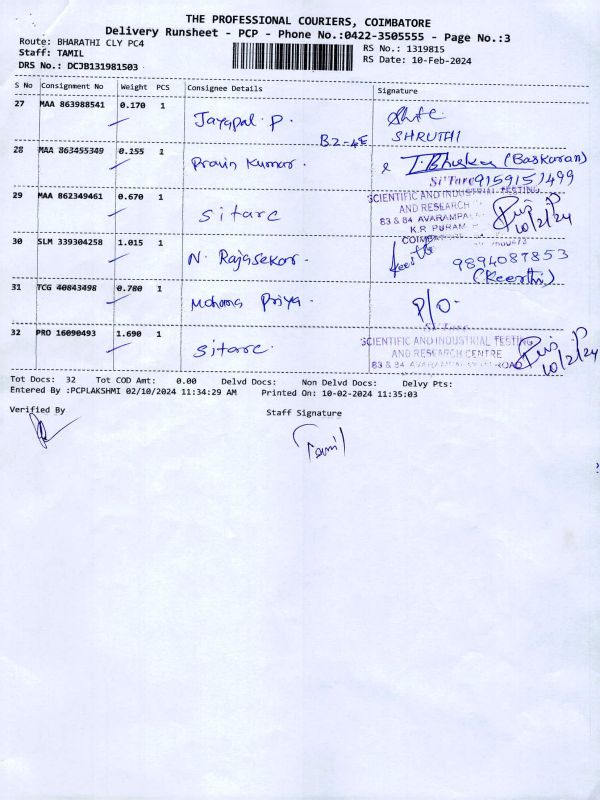 THE PROFESSIONAL COURIERS, COIMBATORE
Delivery Runsheet - PCP - Phone No.:0422-3505555 - Page No.:3
Route: BHARATHI CLY PC4
Staff: TAMIL
DRS No.: DCJB131981503
RS No.: 1319815
RS Date: 10-Feb-2024
S No Consignment No Weight PCS Consignee Details Signature
27 MAA 863988541 0.170 1 Jayapal. P.
B2-4E SHRUTHI
28 MAA 863455349 0.155 1 Pravin Kumar. (Baskaran)
Si'Tarc 9159157499
29 MAA 862349461 0.670 1 sitarc
SCIENTIFIC AND INDUSTRIAL TESTING
AND RESEARCH
83 & 84 AVARAMPAL
K.R PURAM
COIMBAT
10/2/24
30 SLM 339304258 1.015 1 N. Rajasekar. Keerthi 9894087853
(Keerthi)
31 TCG 40843498 0.780 1 Mohana Priya. P/O
Si'Tarc
32 PRO 16090493 1.690 1 sitarc
SCIENTIFIC AND INDUSTRIAL TESTING
AND RESEARCH CENTRE
83 & 84 ROAD
10/2/24
Tot Docs: 32 Tot COD Amt: 0.00 Delvd Docs: Non Delvd Docs: Delvy Pts:
Entered By :PCPLAKSHMI 02/10/2024 11:34:29 AM Printed On: 10-02-2024 11:35:03
Verified By Staff Signature
Tamil